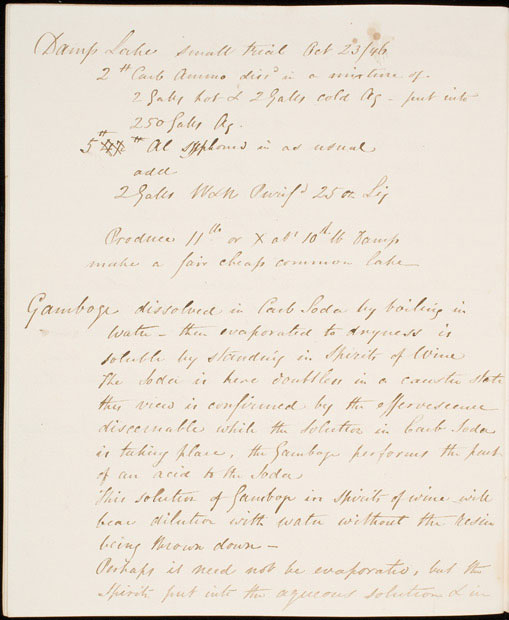 Damp Lake small trial Oct 23/46
2 # Carb Ammo diss^d in a mixture of
2 Galls hot & 2 Galls cold Aq - put into
250 Galls Aq.
5 # Al syphoned in as usual
add
2 Galls W&N Purif^d 25 oz Liq
Produce 11 lb or X abt 10 lb Damp
make a fair cheap common lake
Gamboge dissolved in Carb Soda by boiling in
water - then evaporated to dryness is
soluble by standing in Spirits of Wine
The Soda is here doubtless in a caustic state
this view is confirmed by the effervescence
discernable while the solution in Carb Soda
is taking place, the Gamboge performs the part
of an acid to the Soda
This solution of Gamboge in Spirits of wine will
bear dilution with water without the Resin
being thrown down -
Perhaps it need not be evaporated, but the
Spirits put into the aqueous solution & in